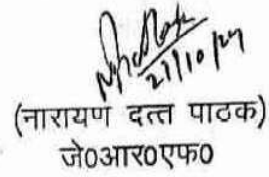 27/10/24
(नारायण दत्त पाठक)
जे0आर0एफ0